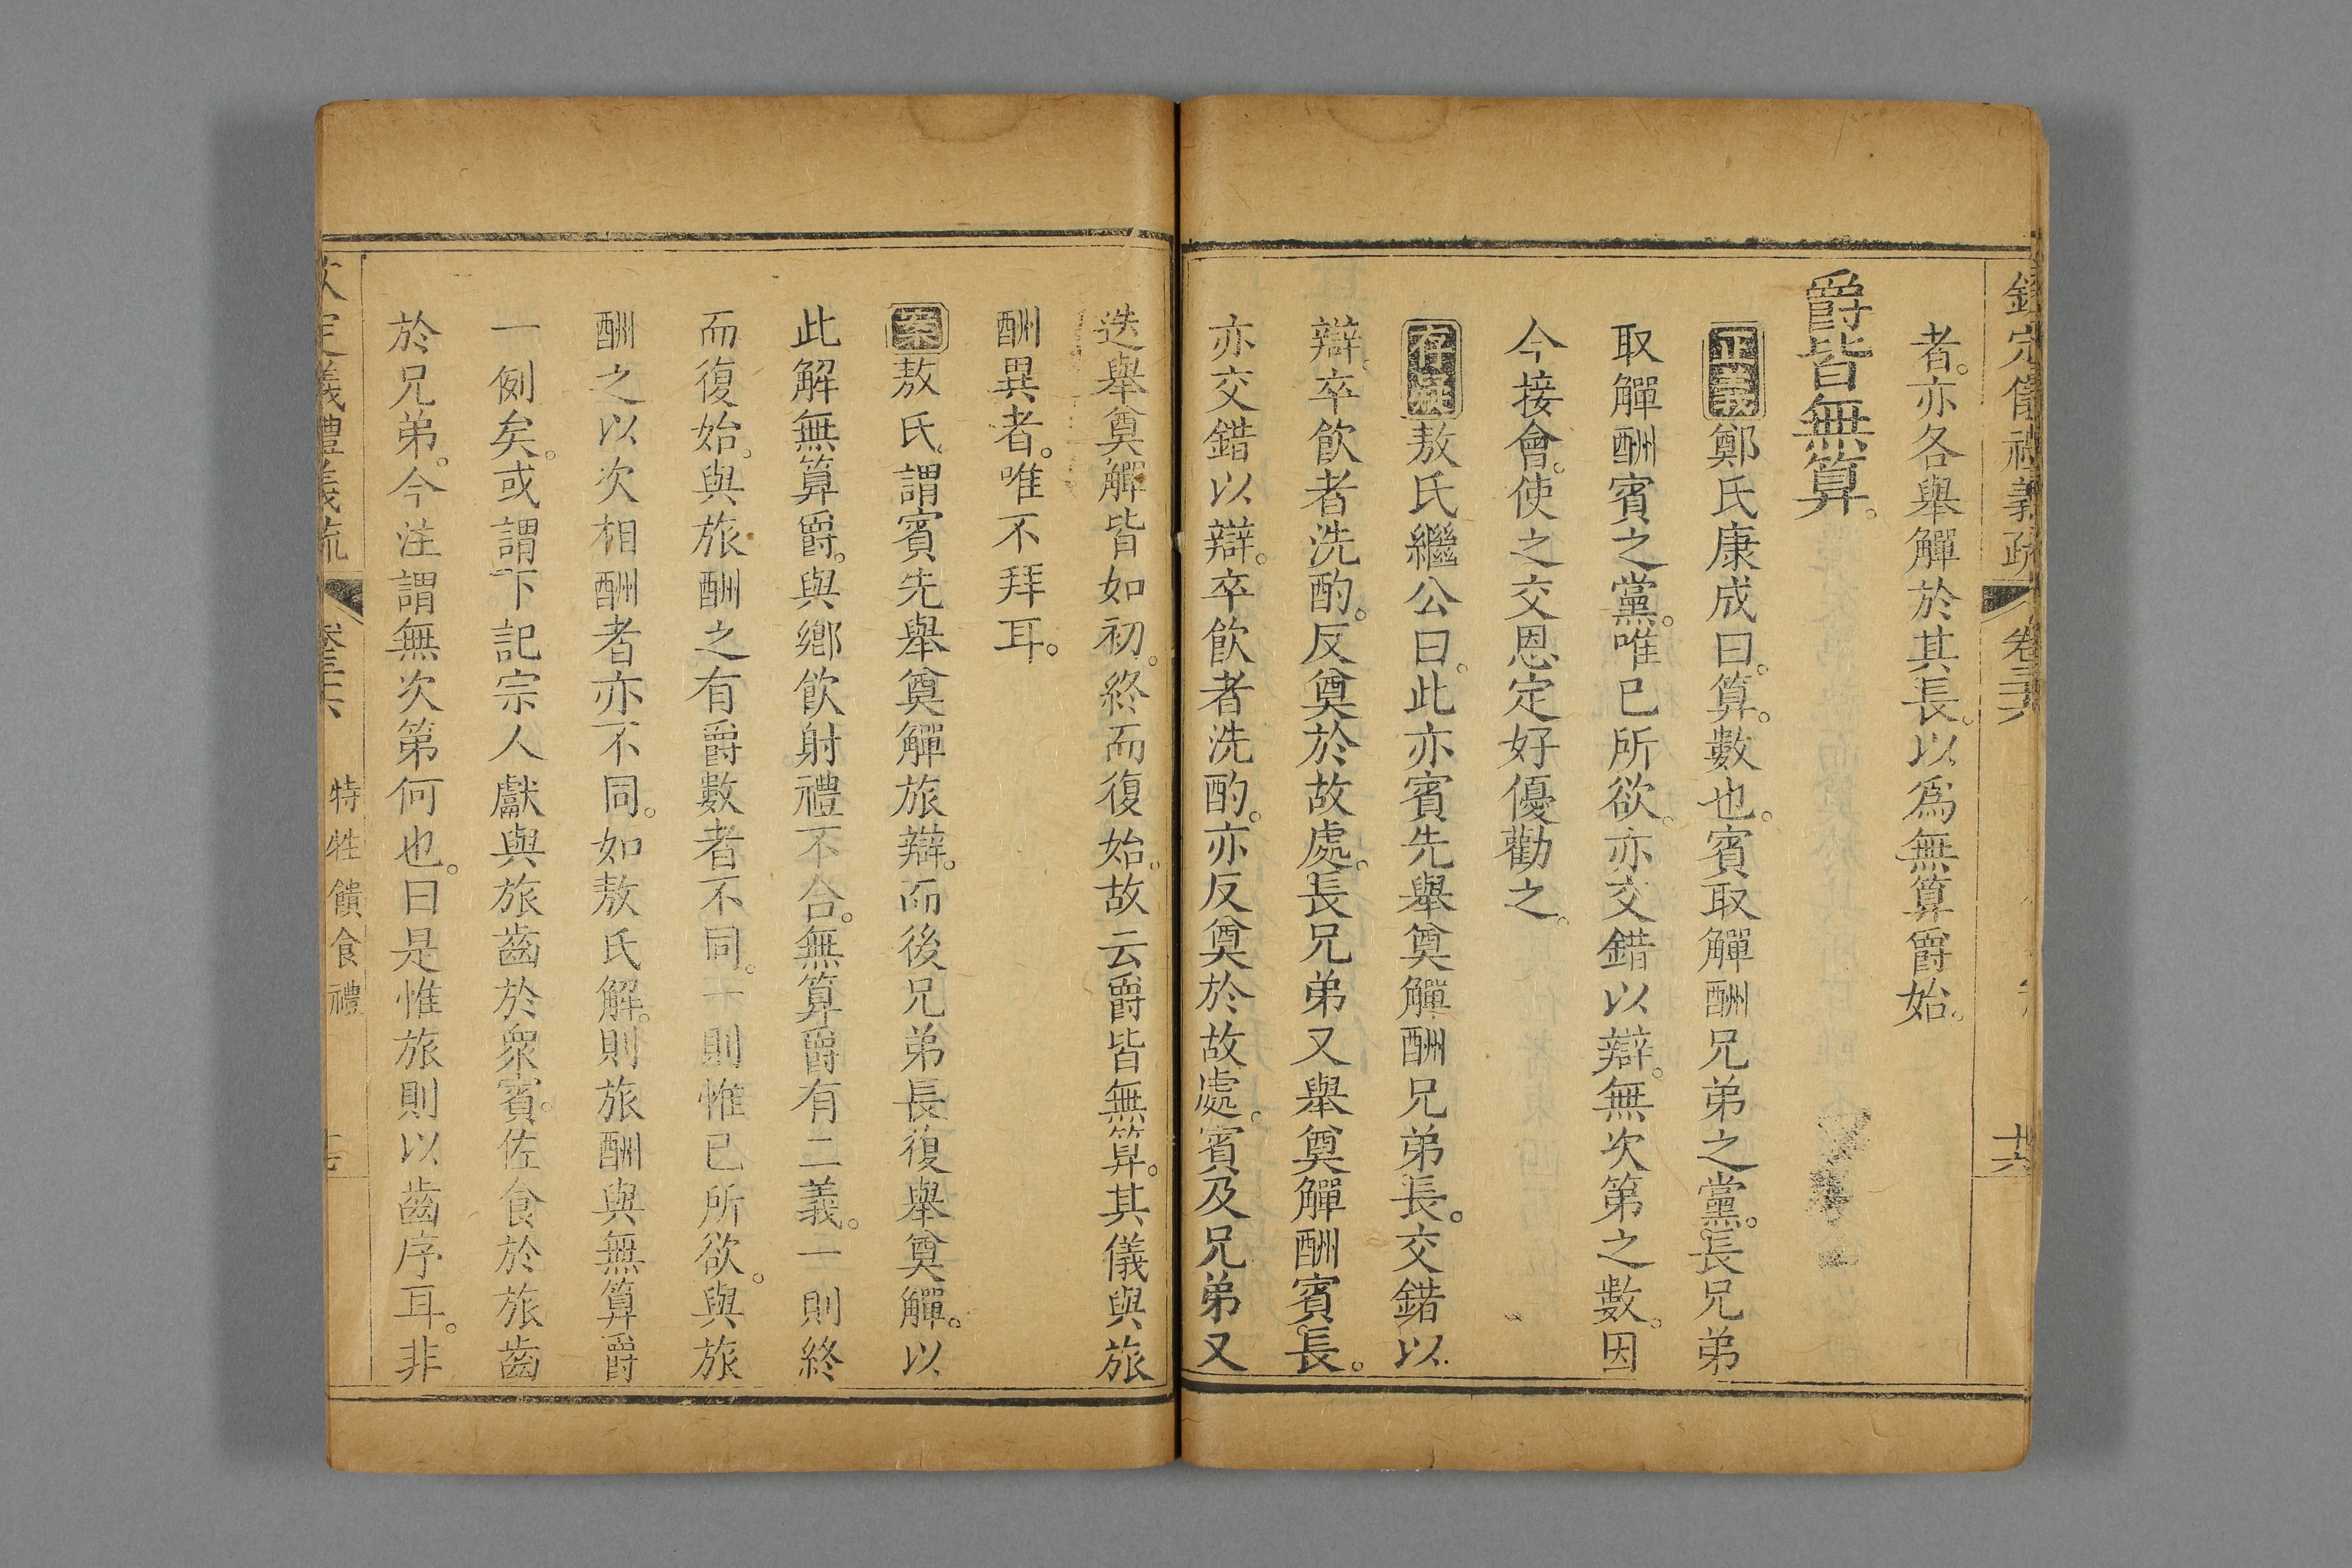 者。亦各舉觶於其長。以爲無算爵始。
爵皆無算。
正義鄭氏康成曰。算。數也。賓取觶酬兄弟之黨。長兄弟
取觶酬賓之黨。唯已所欲。亦交錯以辯。無次第之數。因
今接會。使之交恩定好優勸之。
存疑敖氏繼公曰。此亦賓先舉奠觶酬兄弟長。交錯以
辯。卒飮者洗酌。反奠於故處。長兄弟又舉奠觶酬賓長。
亦交錯以辯。卒飮者洗酌。亦反奠於故處。賓及兄弟又
迭舉奠觶皆如初。終而復始。故云爵皆無算。其儀與旅
酬異者。唯不拜耳。
案敖氏謂賓先舉奠觶旅辯。而後兄弟長復舉奠觶。以
此解無算爵。與鄉飮射禮不合。無算爵有二義。一則終
而復始。與旅酬之有爵數者不同。一則惟已所欲。與旅
酬之以次相酬者亦不同。如敖氏解。則旅酬與無算爵
一例矣。或謂下記宗人獻與旅齒於衆賓。佐食於旅齒
於兄弟。今注謂無次第何也。曰是惟旅則以齒序耳。非
欽定義禮義疏 卷三十六 特牲饋食禮